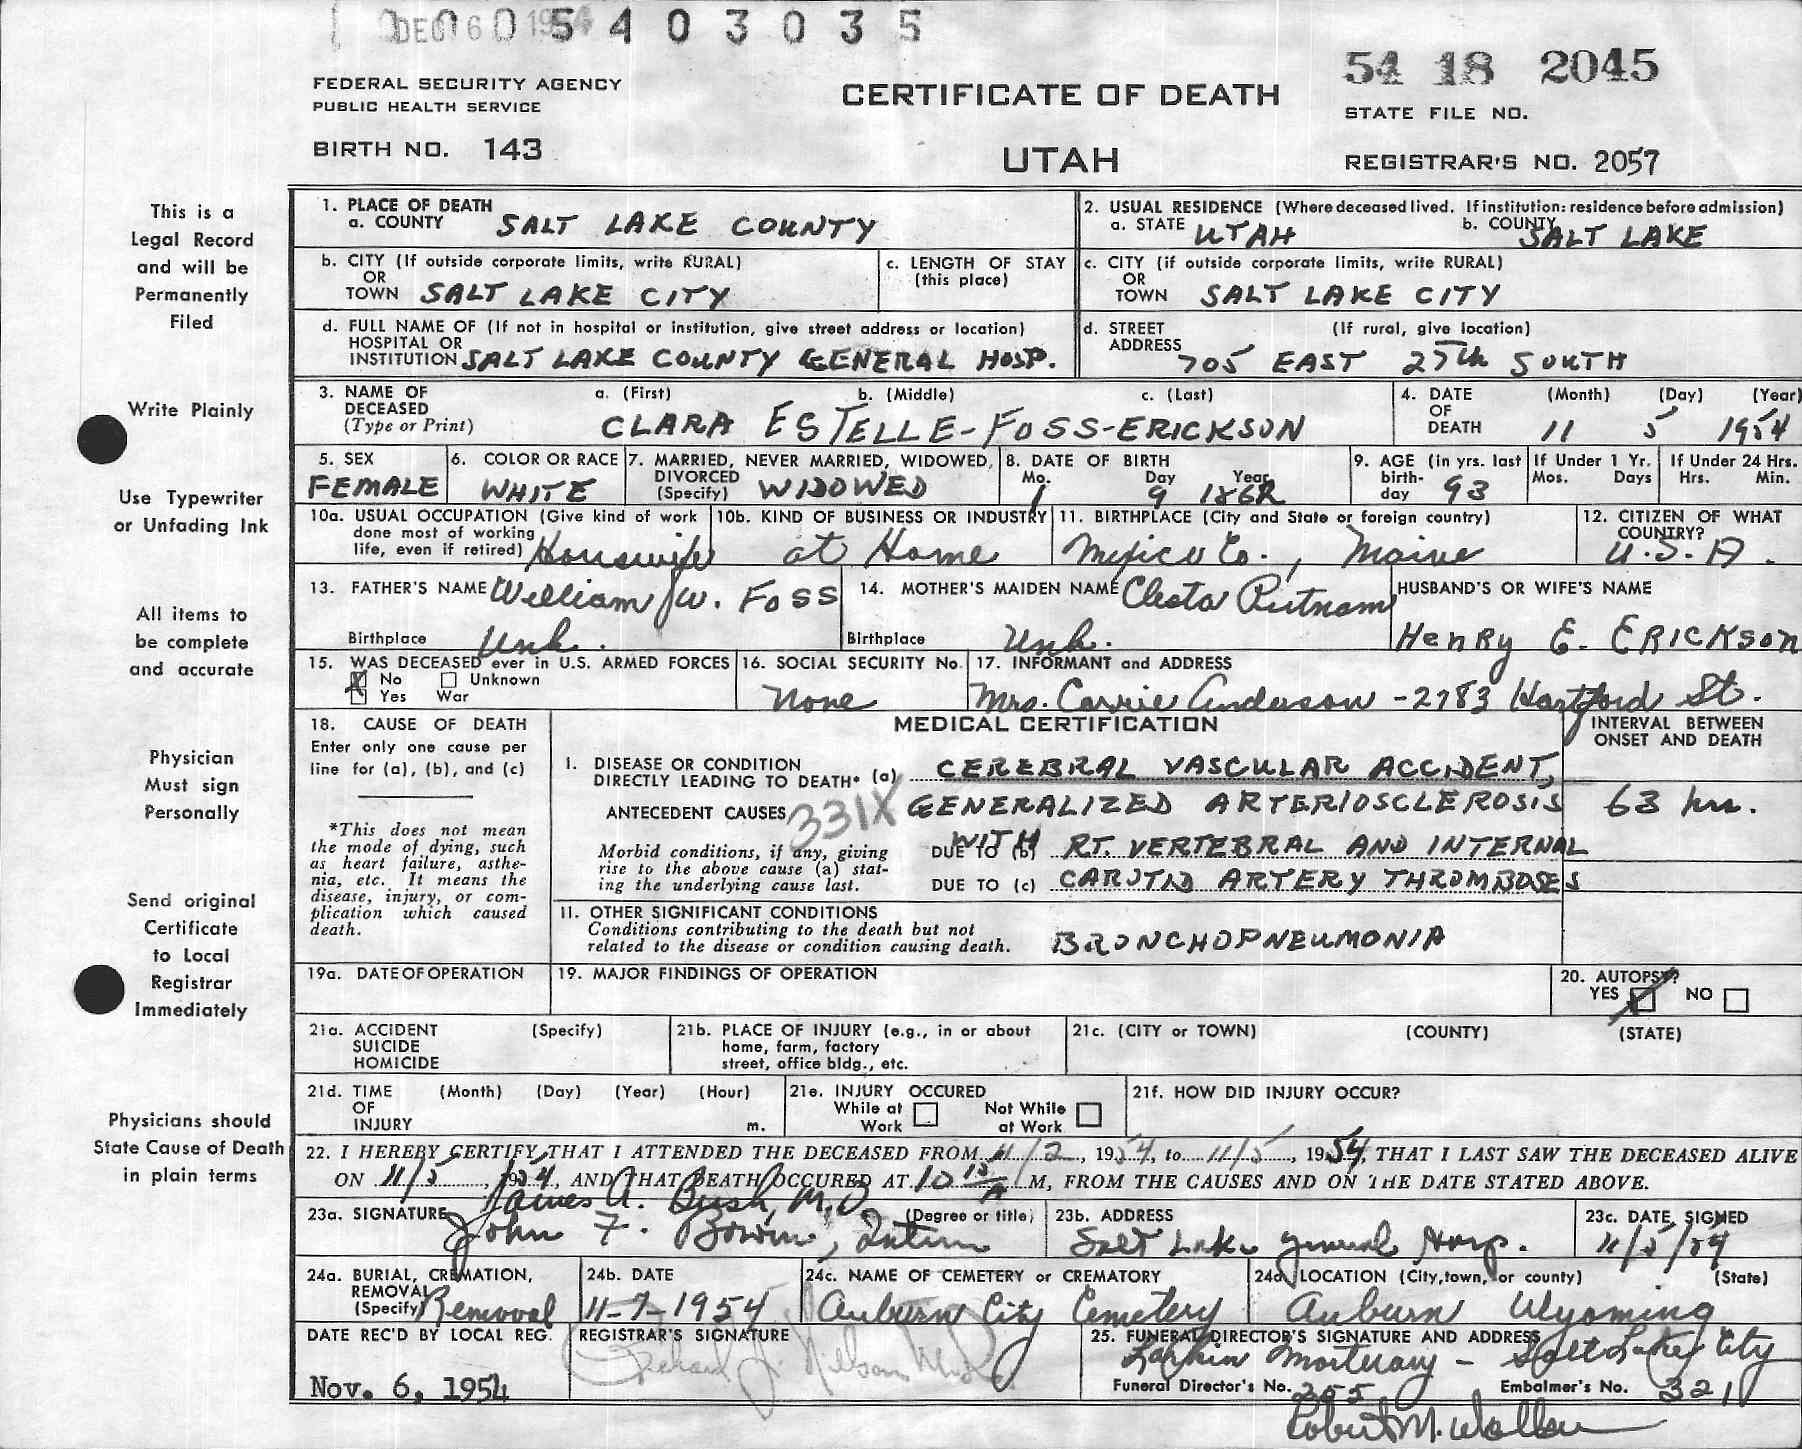 DEC 6 1954
0 0 0 5 4 0 3 0 3 5
FEDERAL SECURITY AGENCY
PUBLIC HEALTH SERVICE
BIRTH NO. 143
CERTIFICATE OF DEATH
UTAH
54 18 2045
STATE FILE NO.
REGISTRAR'S NO. 2057
This is a
Legal Record
and will be
Permanently
Filed
Write Plainly
Use Typewriter
or Unfading Ink
All items to
be complete
and accurate
Physician
Must sign
Personally
Send original
Certificate
to Local
Registrar
Immediately
Physicians should
State Cause of Death
in plain terms
1. PLACE OF DEATH
a. COUNTY SALT LAKE COUNTY
2. USUAL RESIDENCE (Where deceased lived. If institution: residence before admission)
a. STATE UTAH b. COUNTY SALT LAKE
b. CITY (If outside corporate limits, write RURAL)
OR
TOWN SALT LAKE CITY
c. LENGTH OF STAY
(this place)
c. CITY (if outside corporate limits, write RURAL)
OR
TOWN SALT LAKE CITY
d. FULL NAME OF (If not in hospital or institution, give street address or location)
HOSPITAL OR
INSTITUTION SALT LAKE COUNTY GENERAL HOSP.
d. STREET (If rural, give location)
ADDRESS 705 EAST 27th SOUTH
3. NAME OF DECEASED (Type or Print)
a. (First) b. (Middle) c. (Last)
CLARA ESTELLE-FOSS-ERICKSON
4. DATE OF DEATH (Month) (Day) (Year)
11 5 1954
5. SEX
FEMALE
6. COLOR OR RACE
WHITE
7. MARRIED, NEVER MARRIED, WIDOWED,
DIVORCED
(Specify) WIDOWED
8. DATE OF BIRTH
Mo. Day Year
1 9 186
9. AGE (in yrs. last
birth-
day 93
If Under 1 Yr.
Mos. Days
If Under 24 Hrs.
Hrs. Min.
10a. USUAL OCCUPATION (Give kind of work
done most of working
life, even if retired) Housewife
10b. KIND OF BUSINESS OR INDUSTRY
at Home
11. BIRTHPLACE (City and State or foreign country)
Mexico Co., Maine
12. CITIZEN OF WHAT
COUNTRY?
U.S.A.
13. FATHER'S NAME William W. Foss
Birthplace Unk.
14. MOTHER'S MAIDEN NAME Clesta Putnam
Birthplace Unk.
HUSBAND'S OR WIFE'S NAME
Henry E. ERICKSON
15. WAS DECEASED ever in U.S. ARMED FORCES
X No Unknown
Yes War
16. SOCIAL SECURITY No.
None
17. INFORMANT and ADDRESS
Mrs. Carrie Anderson - 2783 Hartford St.
18. CAUSE OF DEATH
Enter only one cause per
line for (a), (b), and (c)
*This does not mean
the mode of dying, such
as heart failure, asthe-
nia, etc. It means the
disease, injury, or com-
plication which caused
death.
MEDICAL CERTIFICATION
INTERVAL BETWEEN
ONSET AND DEATH
I. DISEASE OR CONDITION
DIRECTLY LEADING TO DEATH* (a) CEREBRAL VASCULAR ACCIDENT,
ANTECEDENT CAUSES 331X GENERALIZED ARTERIOSCLEROSIS 63 hrs.
Morbid conditions, if any, giving
rise to the above cause (a) stat-
ing the underlying cause last.
WITH
DUE TO (b) RT. VERTEBRAL AND INTERNAL
DUE TO (c) CAROTID ARTERY THROMBOSES
II. OTHER SIGNIFICANT CONDITIONS
Conditions contributing to the death but not
related to the disease or condition causing death. BRONCHOPNEUMONIA
19a. DATE OF OPERATION
19. MAJOR FINDINGS OF OPERATION
20. AUTOPSY?
YES X NO
21a. ACCIDENT (Specify)
SUICIDE
HOMICIDE
21b. PLACE OF INJURY (e.g., in or about
home, farm, factory
street, office bldg., etc.
21c. (CITY or TOWN) (COUNTY) (STATE)
21d. TIME (Month) (Day) (Year) (Hour)
OF
INJURY m.
21e. INJURY OCCURED
While at Work Not While at Work
21f. HOW DID INJURY OCCUR?
22. I HEREBY CERTIFY THAT I ATTENDED THE DECEASED FROM 11/2, 1954, to 11/5, 1954, THAT I LAST SAW THE DECEASED ALIVE
ON 11/5, 1954, AND THAT DEATH OCCURED AT 10 A M, FROM THE CAUSES AND ON THE DATE STATED ABOVE.
James A. Bush, M.D.
23a. SIGNATURE (Degree or title)
John F. Bowen, Intern
23b. ADDRESS
Salt Lake General Hosp.
23c. DATE SIGNED
11/5/54
24a. BURIAL, CREMATION,
REMOVAL
(Specify) Removal
24b. DATE
11-7-1954
24c. NAME OF CEMETERY or CREMATORY
Auburn City Cemetery
24d LOCATION (City, town, or county) (State)
Auburn Wyoming
DATE REC'D BY LOCAL REG.
Nov. 6, 1954
REGISTRAR'S SIGNATURE
Richard J. Nelson
25. FUNERAL DIRECTOR'S SIGNATURE AND ADDRESS
Larkin Mortuary - Salt Lake City
Funeral Director's No. 355 Embalmer's No. 321
Robert M.